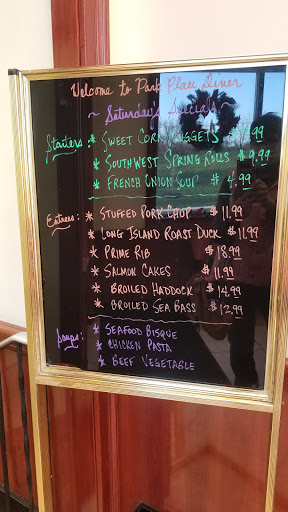 Welcome to Park Place Diner
~ Saturday's Specials ~
Starters: * Sweet Corn Nuggets $ .99
* Southwest Spring Rolls $9.99
* French Onion Soup $4.99
Entrees: * Stuffed Pork Chop $11.99
* Long Island Roast Duck $11.99
* Prime Rib $18.99
* Salmon Cakes $11.99
* Broiled Haddock $14.99
* Broiled Sea Bass $12.99
Soups: * Seafood Bisque
* Chicken Pasta
* Beef Vegetable